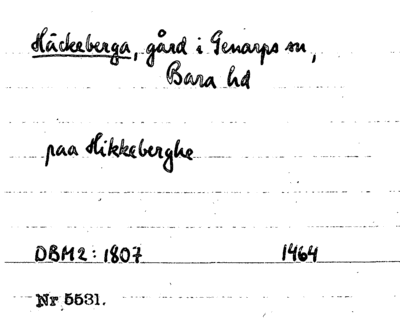 Häckeberga, gård i Genarps sn,
Bara hd
paa Hikkeberghe
DBM2: 1807 1464
Nr 5531.